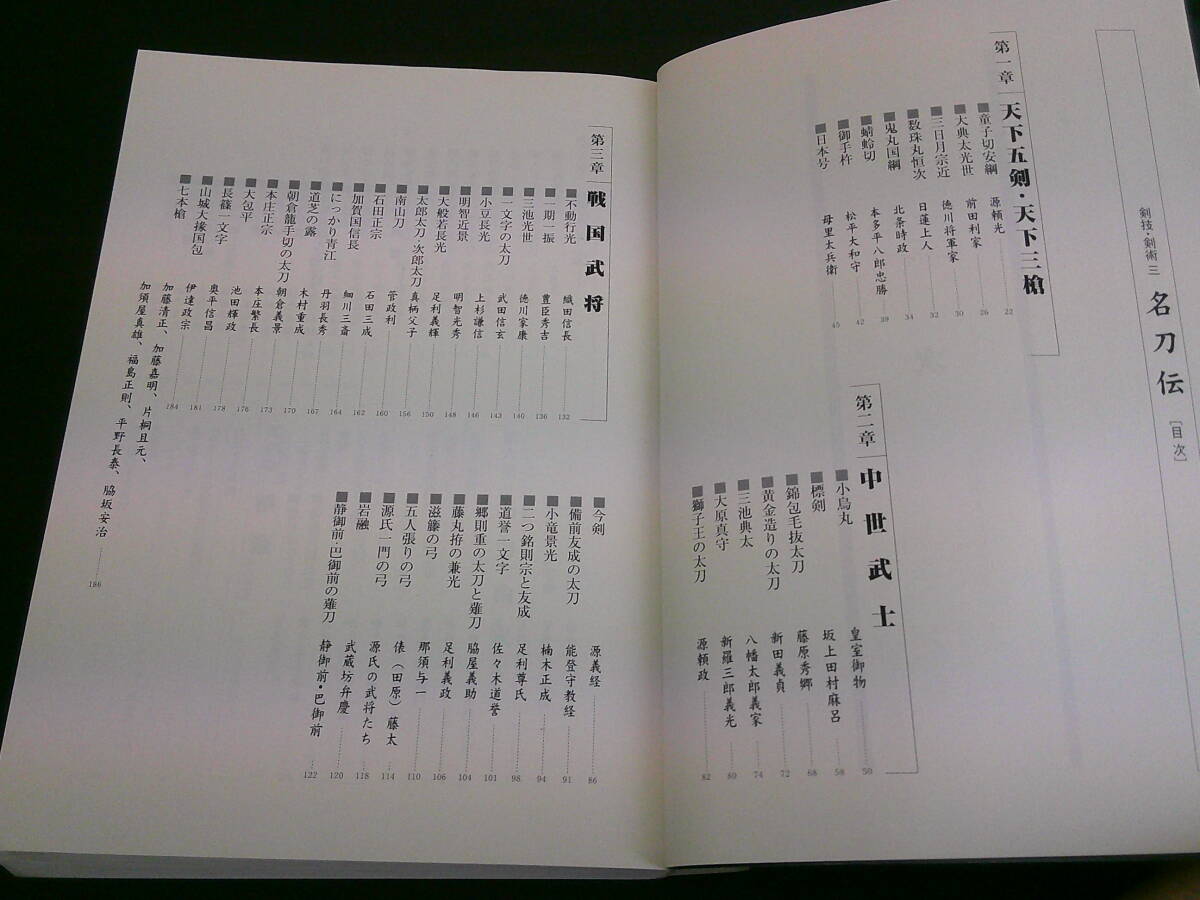 剣技・剣術三 名刀伝 [目次]
第一章 天下五剣・天下三槍
■童子切安綱 源頼光 22
■大典太光世 前田利家 26
■三日月宗近 徳川将軍家 30
■数珠丸恒次 日蓮上人 32
■鬼丸国綱 北条時政 34
■蜻蛉切 本多平八郎忠勝 39
■御手杵 松平大和守 42
■日本号 母里太兵衛 45
第二章 中世武士
■小烏丸 皇室御物 50
■標剣 坂上田村麻呂 58
■錦包毛抜太刀 藤原秀郷 68
■黄金造りの太刀 新田義貞 72
■三池典太 八幡太郎義家 74
■大原真守 新羅三郎義光 80
■獅子王の太刀 源頼政 82
■今剣 源義経 86
■備前友成の太刀 能登守教経 91
■小竜景光 楠木正成 94
■二つ銘則宗と友成 足利尊氏 98
■道誉一文字 佐々木道誉 101
■郷則重の太刀と薙刀 脇屋義助 104
■藤丸拵の兼光 足利義政 106
■滋籐の弓 那須与一 110
■五人張りの弓 俵（田原）藤太 114
■源氏一門の弓 源氏の武将たち 118
■岩融 武蔵坊弁慶 120
■静御前・巴御前の薙刀 静御前・巴御前 122
第三章 戦国武将
■不動行光 織田信長 132
■一期一振 豊臣秀吉 136
■三池光世 徳川家康 140
■一文字の太刀 武田信玄 143
■小豆長光 上杉謙信 146
■明智近景 明智光秀 148
■大般若長光 足利義輝 150
■太郎太刀・次郎太刀 真柄父子 156
■南山刀 菅政利 160
■石田正宗 石田三成 162
■加賀国信長 細川三斎 164
■にっかり青江 丹羽長秀 167
■道芝の露 木村重成 170
■朝倉籠手切の太刀 朝倉義景 173
■本庄正宗 本庄繁長 176
■大包平 池田輝政 178
■長篠一文字 奥平信昌 181
■山城大掾国包 伊達政宗 184
■七本槍 加藤清正、加藤嘉明、片桐且元、
加須屋真雄、福島正則、平野長泰、脇坂安治 186